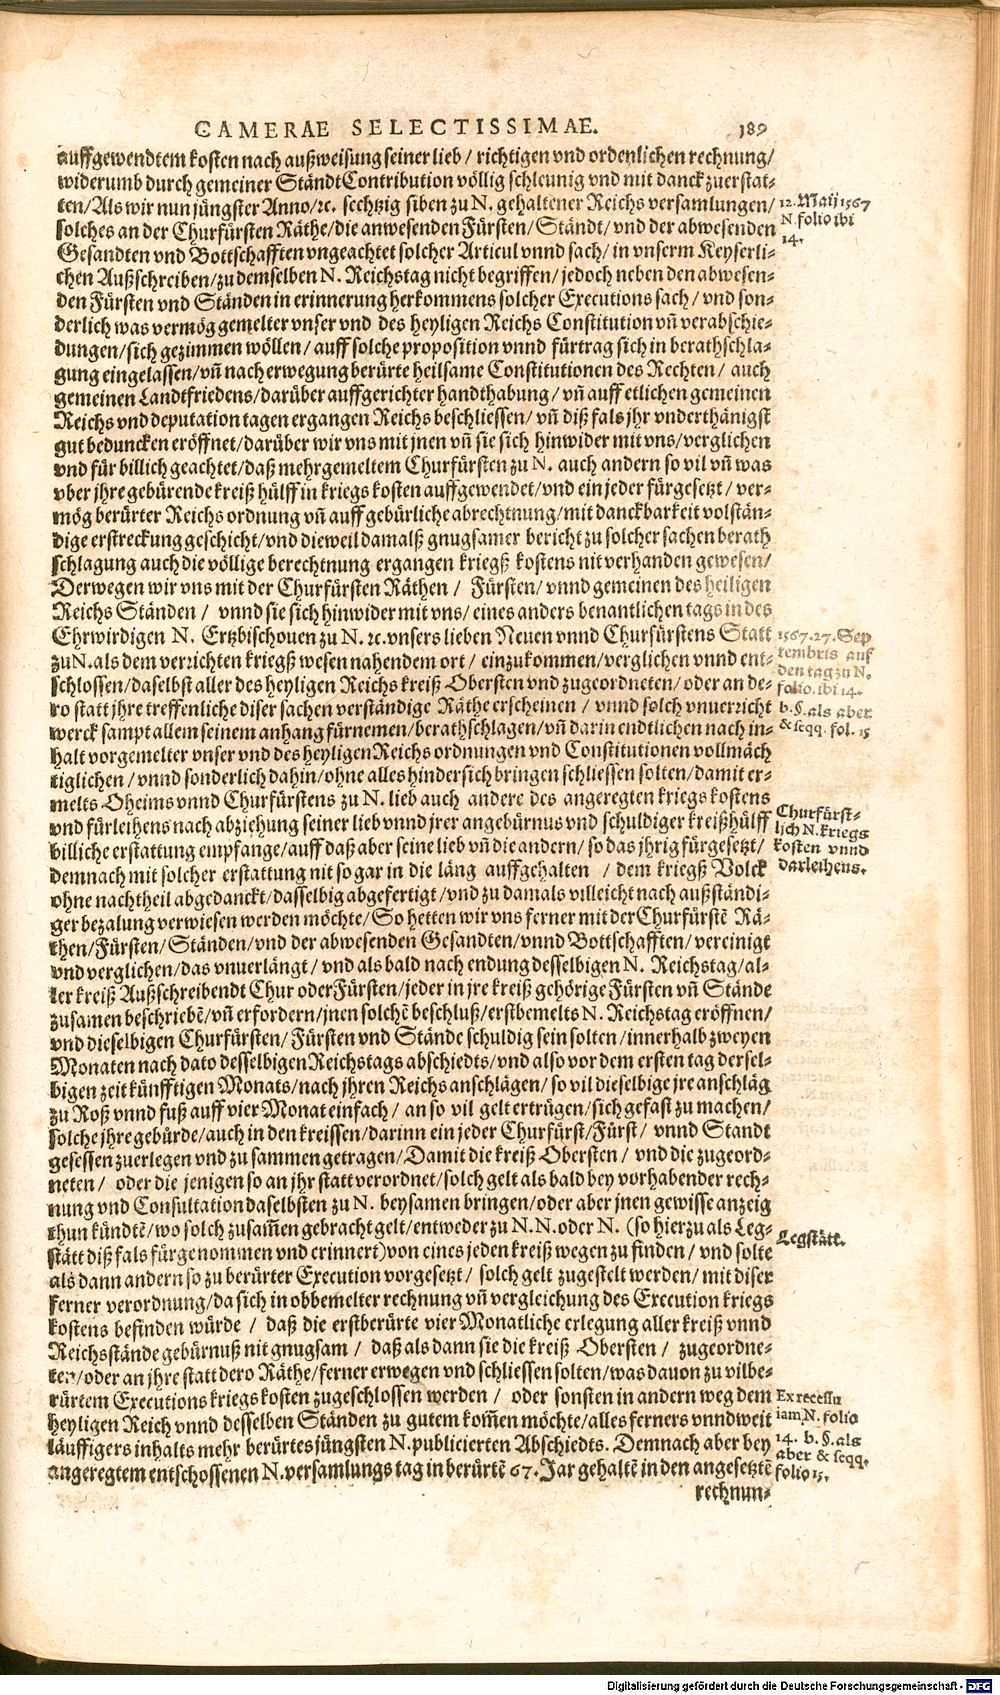 CAMERAE SELECTISSIMAE. 189
auffgewendtem kosten nach außweisung seiner lieb / richtigen vnd ordenlichen rechnung/
widerumb durch gemeiner Ständt Contribution völlig schleunig vnd mit danck zuerstat-
ten/Als wir nun jüngster Anno/ꝛc. sechtzig siben zu N. gehaltener Reichs versamlungen/
solches an der Churfürsten Räthe/die anwesenden Fürsten/Ständt/vnd der abwesenden
Gesandten vnd Bottschafften vngeachtet solcher Articul vnnd sach/in vnserm Keyserli-
chen Außschreiben/zu demselben N. Reichstag nicht begriffen/jedoch neben den abwesen-
den Fürsten vnd Ständen in erinnerung herkommens solcher Executions sach/vnd son-
derlich was vermög gemelter vnser vnd des heyligen Reichs Constitution vñ verabschie-
dungen/sich gezimmen wöllen/auff solche proposition vnnd fürtrag sich in berathschla-
gung eingelassen/vñ nach erwegung berürte heilsame Constitutionen des Rechten/auch
gemeinen Landtfriedens/darüber auffgerichter handthabung/vñ auff etlichen gemeinen
Reichs vnd deputation tagen ergangen Reichs beschliessen/vñ diß fals jhr vnderthänigst
gut beduncken eröffnet/darüber wir vns mit jnen vñ sie sich hinwider mit vns/verglichen
vnd für billich geachtet/daß mehrgemeltem Churfürsten zu N. auch andern so vil vñ was
vber jhre gebürende kreiß hülff in kriegs kosten auffgewendet/vnd ein jeder fürgesetzt/ver-
mög berürter Reichs ordnung vñ auff gebürliche abrechtnung/mit danckbarkeit volstän-
dige erstreckung geschicht/vnd dieweil damalß gnugsamer bericht zu solcher sachen berath
schlagung auch die völlige berechtnung ergangen kriegß kostens nit verhanden gewesen/
Derwegen wir vns mit der Churfürsten Räthen / Fürsten/vnnd gemeinen des heiligen
Reichs Ständen / vnnd sie sich hinwider mit vns/eines anders benantlichen tags in des
Ehrwirdigen N. Ertzbischouen zu N. ꝛc. vnsers lieben Neuen vnnd Churfürstens Statt
zu N. als dem verrichten kriegß wesen nahendem ort / einzukommen/verglichen vnnd ent-
schlossen/daselbst aller des heyligen Reichs kreiß Obersten vnd zugeordneten/oder an de-
ro statt jhre treffenliche diser sachen verständige Räthe erscheinen / vnnd solch vnuerricht
werck sampt allem seinem anhang fürnemen/berathschlagen/vñ darin endtlichen nach in-
halt vorgemelter vnser vnd des heyligen Reichs ordnungen vnd Constitutionen vollmäch
tiglichen/vnnd sonderlich dahin/ohne alles hindersich bringen schliessen solten/damit er-
melts Oheims vnnd Churfürstens zu N. lieb auch andere des angeregten kriegs kostens
vnd fürleihens nach abziehung seiner lieb vnnd jrer angebürnus vnd schuldiger kreißhülff
billiche erstattung empfange/auff daß aber seine lieb vñ die andern/so das jhrig fürgesetzt/
demnach mit solcher erstattung nit so gar in die läng auffgehalten / dem kriegß Volck
ohne nachtheil abgedanckt/dasselbig abgefertigt/vnd zu damals villeicht nach außständi-
ger bezalung verwiesen werden möchte/So hetten wir vns ferner mit der Churfürstẽ Rä-
then/Fürsten/Ständen/vnd der abwesenden Gesandten/vnnd Bottschafften/vereinigt
vnd verglichen/das vnuerlängt/vnd als bald nach endung desselbigen N. Reichstag/al-
ler kreiß Außschreibendt Chur oder Fürsten/jeder in jre kreiß gehörige Fürsten vñ Stände
zusamen beschriebẽ/vñ erfordern/jnen solchẽ beschluß/erstbemelts N. Reichstag eröffnen/
vnd dieselbigen Churfürsten/Fürsten vnd Stände schuldig sein solten/innerhalb zweyen
Monaten nach dato desselbigen Reichstags abschiedts/vnd also vor dem ersten tag dersel-
bigen zeit künfftigen Monats/nach jhren Reichs anschlägen/so vil dieselbige jre anschläg
zu Roß vnnd fuß auff vier Monat einfach / an so vil gelt ertrügen/sich gefast zu machen/
solche jhre gebürde/auch in den kreissen/darinn ein jeder Churfürst/Fürst/ vnnd Standt
gesessen zuerlegen vnd zu sammen getragen/Damit die kreiß Obersten / vnd die zugeord-
neten/ oder die jenigen so an jhr statt verordnet/solch gelt als bald bey vorhabender rech-
nung vnd Consultation daselbsten zu N. beysamen bringen/oder aber jnen gewisse anzeig
thun kündtẽ/wo solch zusam̃en gebracht gelt/entweder zu N.N. oder N. (so hierzu als Leg-
stätt diß fals fürgenommen vnd erinnert)von eines jeden kreiß wegen zu finden/vnd solte
als dann andern so zu berürter Execution vorgesetzt/ solch gelt zugestelt werden/mit diser
ferner verordnung/da sich in obbemelter rechnung vñ vergleichung des Execution kriegs
kostens befinden würde / daß die erstberürte vier Monatliche erlegung aller kreiß vnnd
Reichsstände gebürnuß nit gnugsam / daß als dann sie die kreiß Obersten / zugeordne-
ten/oder an jhre statt dero Räthe/ferner erwegen vnd schliessen solten/was dauon zu vilbe-
rürtem Executions kriegs kosten zugeschlossen werden / oder sonsten in andern weg dem
heyligen Reich vnnd desselben Ständen zu gutem kom̃en möchte/alles ferners vnnd weit
läuffigers inhalts mehr berürtes jüngsten N. publicierten Abschiedts. Demnach aber bey
angeregtem entschossenen N. versamlungs tag in berürtẽ 67. Jar gehaltẽ in den angesetztẽ
rechnun-
12. Maij 1567
N. folio ibi
14.
1567. 27. Sep
tembris auf
den tag zu N.
folio. ibi 14.
b. §. als aber
& seqq. fol. 15
Churfürst-
lich N. kriegs
kosten vnnd
darleihens.
Legstätt.
Ex recessu
iam N. folio
14. b. §. als
aber & seqq.
folio 15.
Digitalisierung gefördert durch die Deutsche Forschungsgemeinschaft - DFG